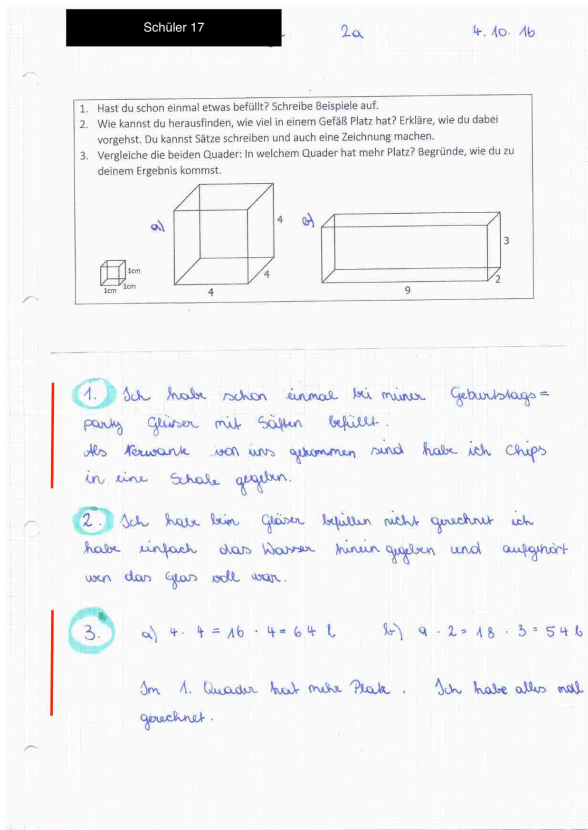 Schüler 17
2a 4. 10. 16
1. Hast du schon einmal etwas befüllt? Schreibe Beispiele auf.
2. Wie kannst du herausfinden, wie viel in einem Gefäß Platz hat? Erkläre, wie du dabei
vorgehst. Du kannst Sätze schreiben und auch eine Zeichnung machen.
3. Vergleiche die beiden Quader: In welchem Quader hat mehr Platz? Begründe, wie du zu
deinem Ergebnis kommst.
a) 4 b)
3
1cm 4
2
1cm 1cm
4 9
1. Ich habe schon einmal bei meiner Geburtstags=
party Gläser mit Säften befüllt.
Als Verwante von uns gekommen sind habe ich Chips
in eine Schale gegeben.
2. Ich habe beim Gläser befüllen nicht gerechnet ich
habe einfach das Wasser hinein gegeben und aufgehört
wen das Glas voll war.
3. a) 4 · 4 = 16 · 4 = 64 l b) 9 · 2 = 18 · 3 = 54 l
Im 1. Quader hat mehr Platz. Ich habe alles mal
gerechnet.